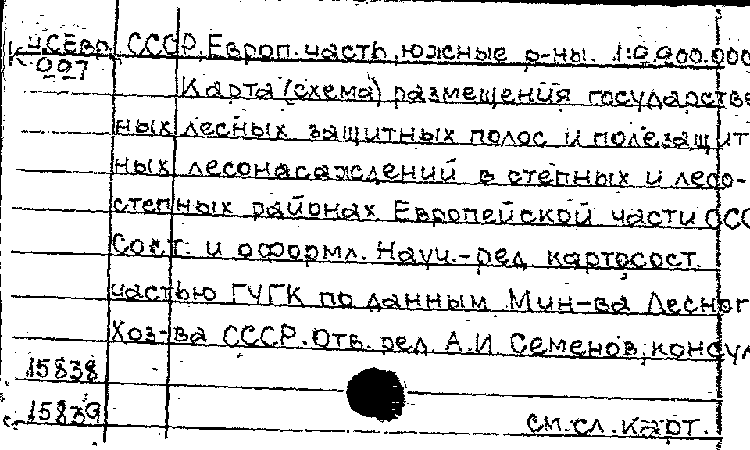 ч.СЕвр. СССР, Европ. часть, южные р-ны. 1:9.900.000
К-997
Карта (схема) размещения государстве
ных лесных защитных полос и полезащит
ных лесонасаждений в степных и лесо-
степных районах Европейской части ССС
Сост. и оформл. Науч.-ред. картосост.
частью ГУГК по данным Мин-ва Лесног
Хоз-ва СССР. Отв. ред. А.И. Семенов, консул
15838
15839
см. сл. карт.